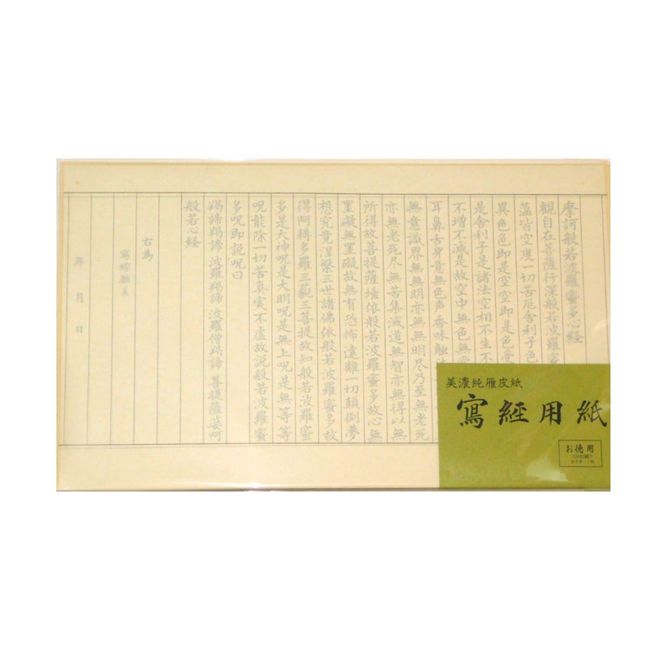 摩訶般若波羅蜜多心経
観自在菩薩行深般若波羅蜜多
蘊皆空度一切苦厄舎利子色
異色色即是空空即是色受
是舎利子是諸法空相不生不
不増不減是故空中無色無受
耳鼻舌身意無色声香味触法
無意識界無無明亦無無明尽乃至無老死
亦無老死尽無苦集滅道無智亦無得以無
所得故菩提薩埵依般若波羅蜜多故心無
罣礙無罣礙故無有恐怖遠離一切顛倒夢
想究竟涅槃三世諸佛依般若波羅蜜多故
得阿耨多羅三藐三菩提故知般若波羅蜜
多是大神呪是大明呪是無上呪是無等等
呪能除一切苦真実不虚故説般若波羅蜜
多呪即説呪曰
羯諦羯諦 波羅羯諦 波羅僧羯諦 菩提薩婆訶
般若心経
右為
年 月 日
美濃純雁皮紙
寫經用紙
お徳用